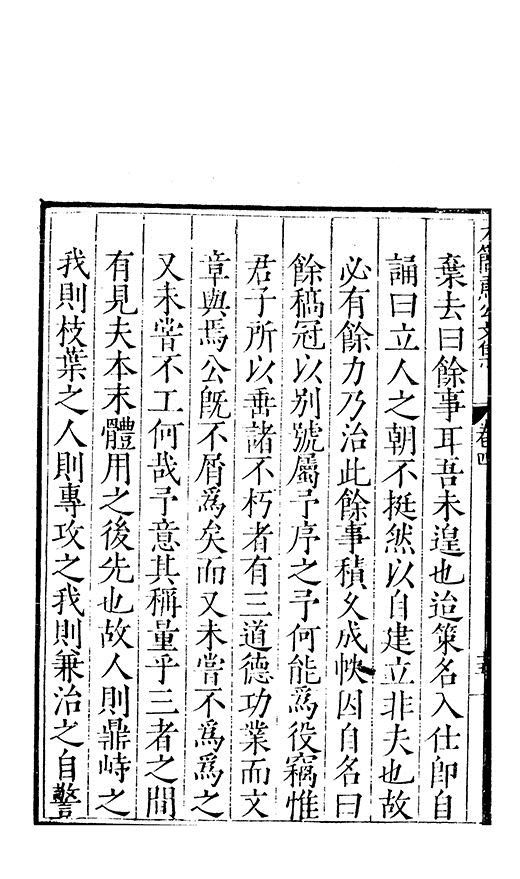 卷四
棄去曰餘事耳吾未遑也迨策名入仕卽自
誦曰立人之朝不挺然以自建立非夫也故
必有餘力乃治此餘事積久成帙因自名曰
餘稿冠以别號屬予序之予何能爲役竊惟
君子所以垂諸不朽者有三道德功業而文
章與焉公旣不屑爲矣而又未嘗不爲爲之
又未嘗不工何哉予意其稱量乎三者之間
有見夫本末體用之後先也故人則鼎峙之
我則枝葉之人則專攻之我則兼治之自警